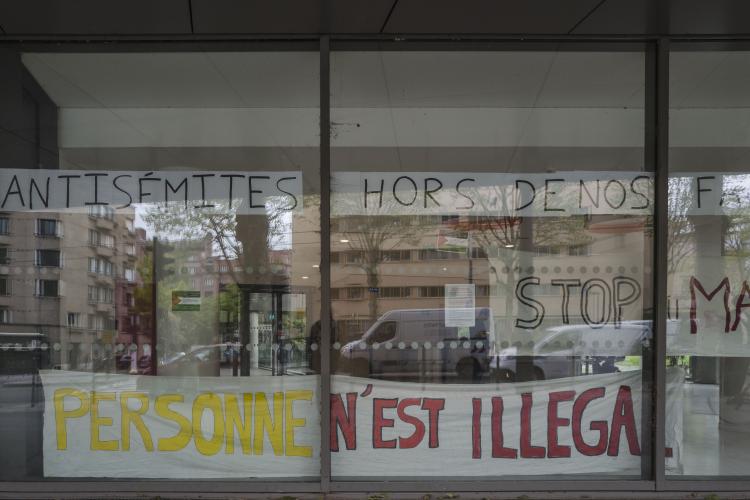 ANTISÉMITES HORS DE NOS FA
STOP MA
PERSONNE N'EST ILLEGAL